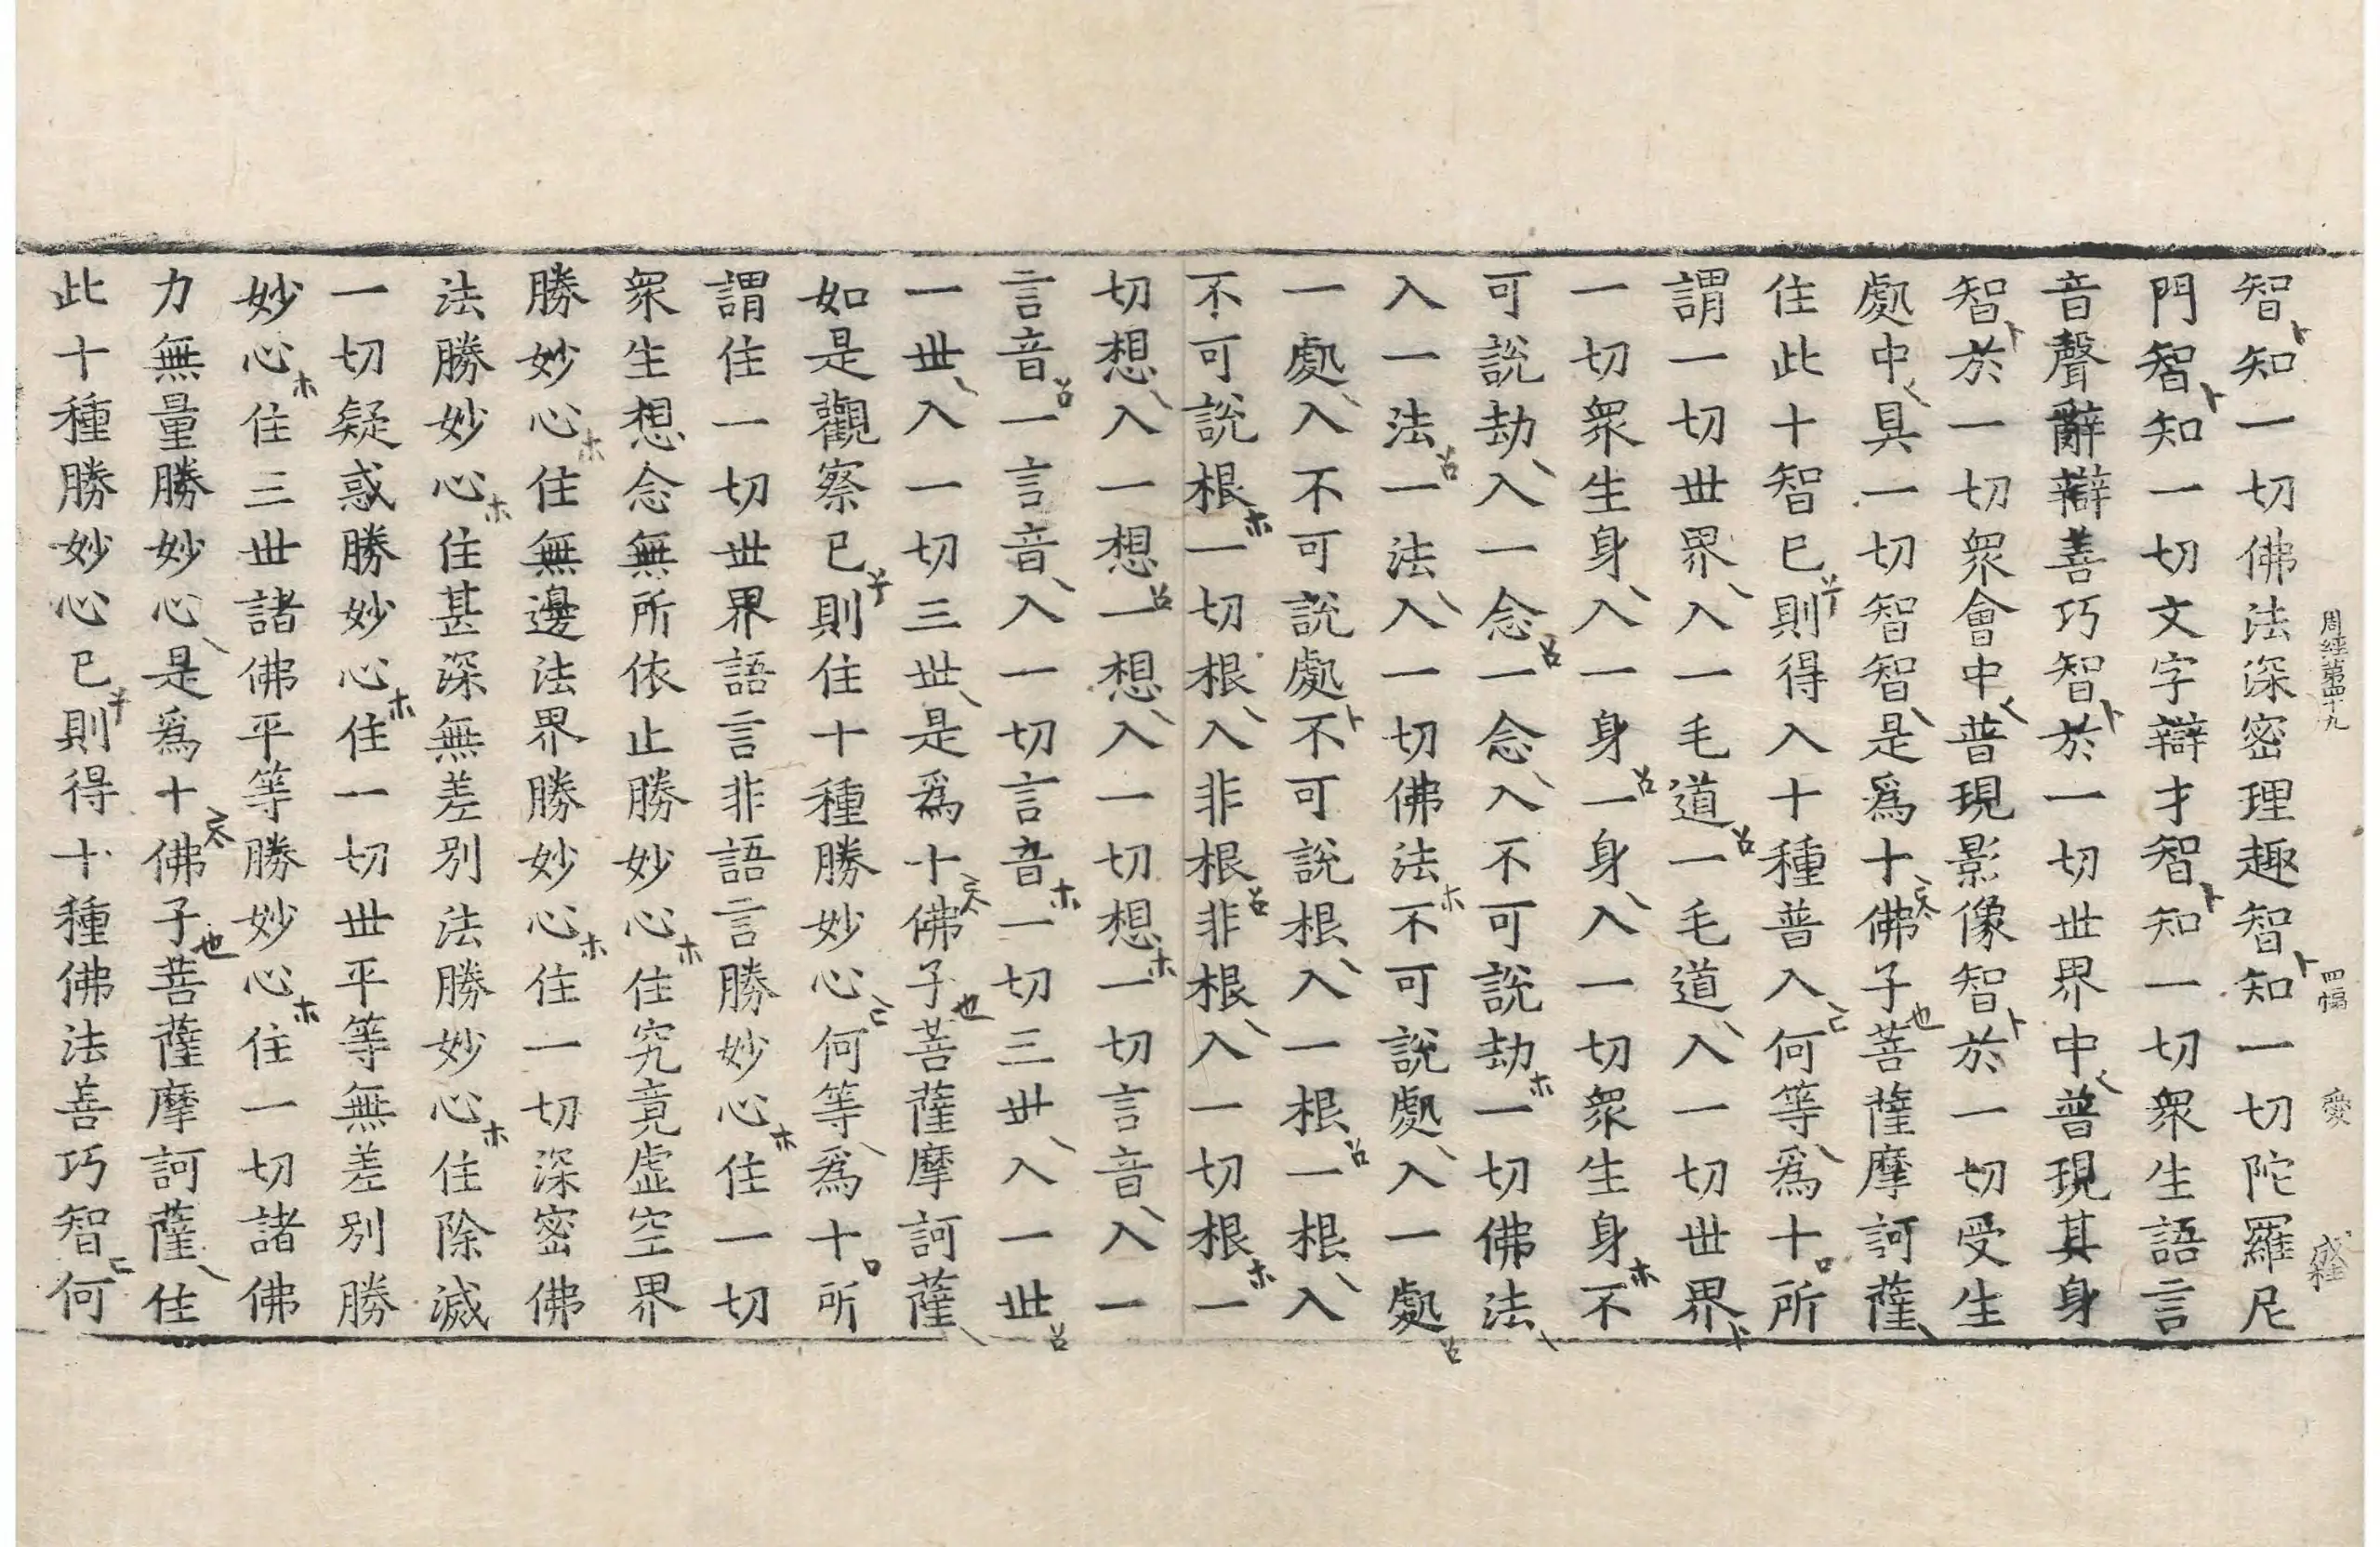 周經第四十九 四幅 愛
智知一切佛法深密理趣智知一切陀羅尼
門智知一切文字辯才智知一切衆生語言
音聲辭辯善巧智於一切世界中普現其身
智於一切衆會中普現影像智於一切受生
處中具一切智智是爲十佛子菩薩摩訶薩
住此十智已則得入十種普入何等爲十所
謂一切世界入一毛道一毛道入一切世界
一切衆生身入一身一身入一切衆生身不
可說劫入一念一念入不可說劫一切佛法
入一法一法入一切佛法不可說處入一處
一處入不可說處不可說根入一根一根入
不可說根一切根入非根非根入一切根一
切想入一想一想入一切想一切言音入一
言音一言音入一切言音一切三世入一世
一世入一切三世是爲十佛子菩薩摩訶薩
如是觀察已則住十種勝妙心何等爲十所
謂住一切世界語言非語言勝妙心住一切
衆生想念無所依止勝妙心住究竟虛空界
勝妙心住無邊法界勝妙心住一切深密佛
法勝妙心住甚深無差別法勝妙心住除滅
一切疑惑勝妙心住一切世平等無差別勝
妙心住三世諸佛平等勝妙心住一切諸佛
力無量勝妙心是爲十佛子菩薩摩訶薩住
此十種勝妙心已則得十種佛法善巧智何